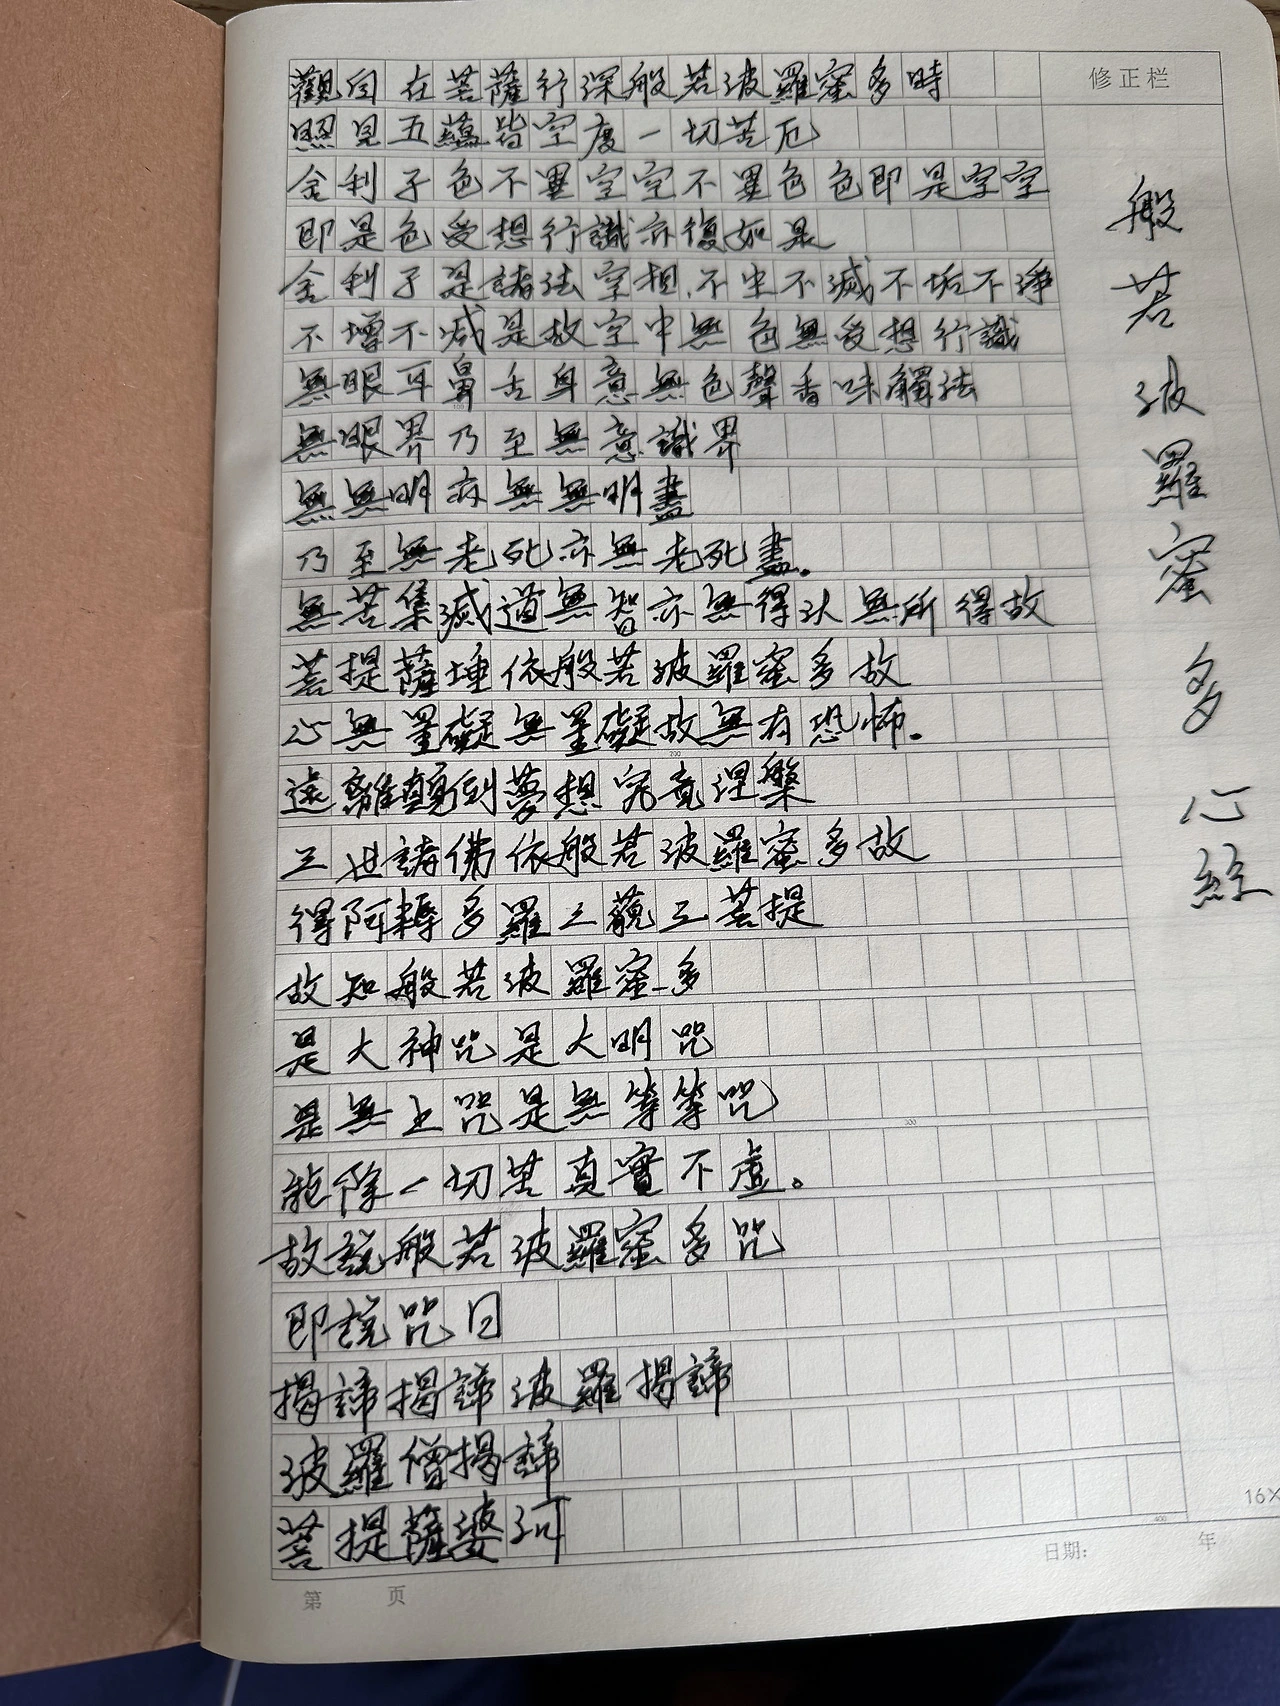 觀自在菩薩行深般若波羅蜜多時
照見五蘊皆空度一切苦厄
舍利子色不異空空不異色色即是空空
即是色受想行識亦復如是
舍利子是諸法空相.不生不滅不垢不淨
不增不減是故空中無色無受想行識
無眼耳鼻舌身意無色聲香味觸法
無眼界乃至無意識界
無無明亦無無明盡
乃至無老死亦無老死盡。
無苦集滅道無智亦無得以無所得故
菩提薩埵依般若波羅蜜多故
心無罣礙無罣礙故無有恐怖。
遠離顛倒夢想究竟涅槃
三世諸佛依般若波羅蜜多故
得阿耨多羅三藐三菩提
故知般若波羅蜜多
是大神咒是大明咒
是無上咒是無等等咒
能除一切苦真實不虛。
故說般若波羅蜜多咒
即說咒曰
揭諦揭諦波羅揭諦
波羅僧揭諦
菩提薩婆訶
修正栏
般若波羅蜜多心經
100
200
300
400
16×
日期: 年
第 页